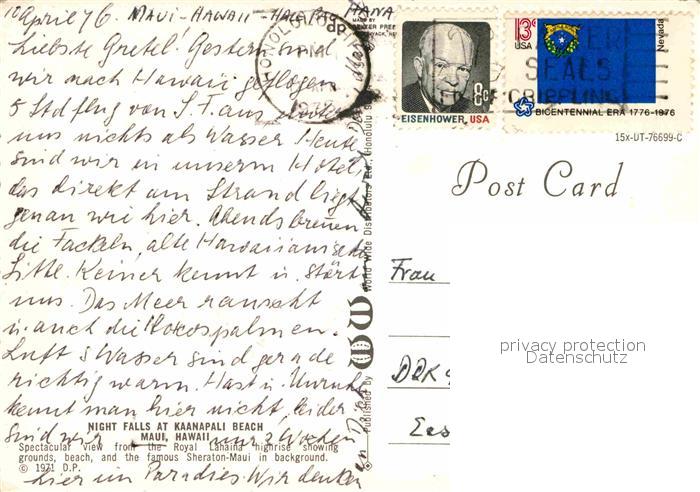 10 April 76. MAUI-HAWAII-
Liebste Gretel. Gestern sind
wir nach Hawaii geflogen
5 Std flug von S.F. aus unter
uns nichts als Wasser. Heute
sind wir in unserm Hotel,
das direkt am Strand liegt
genau wie hier. Abends brennen
die Fackeln, alte Hawaiianische
Sitte. Keiner kennt u. stört
uns. Das Meer rauscht
u. auch die Kokospalmen.
Luft & Wasser sind gerade
richtig warm. Hast u. Unruhe
kennt man hier nicht, leider
sind wir nur 2 Wochen
hier im Paradies. Wir denken
an Dich
NIGHT FALLS AT KAANAPALI BEACH
MAUI, HAWAII
Spectacular view from the Royal Lahaina highrise showing
grounds, beach, and the famous Sheraton-Maui in background.
© 1971 D.P.
HANA
dp
MADE BY
HONOLULU
PM
Published by WW World Wide Distributors Ltd., Honolulu
EISENHOWER USA
8c
13c
USA
Nevada
BICENTENNIAL ERA 1776-1976
EASTER
SEALS
CRIPPLING
15x-DT-76699-C
Post Card
Frau
DDR
privacy protection
Datenschutz